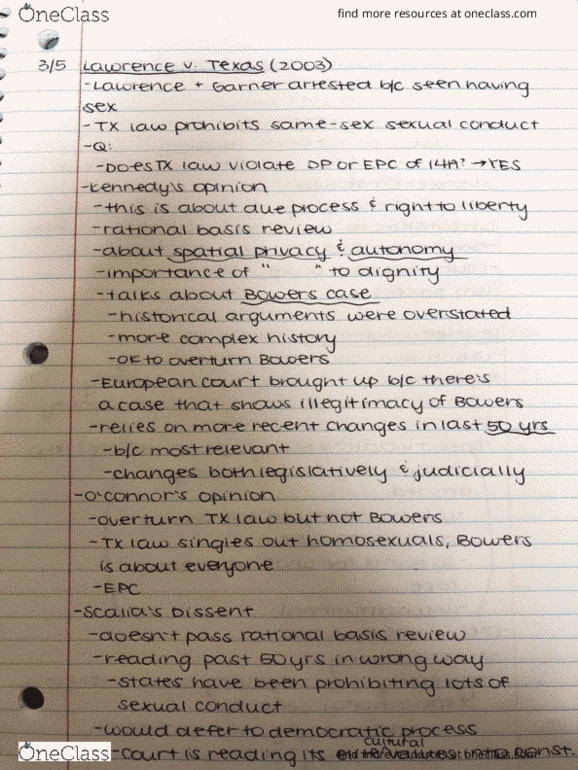 OneClass
find more resources at oneclass.com
3/5 Lawrence v. Texas (2003)
-Lawrence + Garner arrested b/c seen having
sex
-TX law prohibits same-sex sexual conduct
-Q:
-Does TX law violate DP or EPC of 14A? →YES
-Kennedy's opinion
-this is about due process & right to liberty
-rational basis review
-about spatial privacy & autonomy
-importance of " " to dignity
-talks about Bowers case
-historical arguments were overstated
-more complex history
-OK to overturn Bowers
-European court brought up b/c there's
a case that shows illegitimacy of Bowers
-relies on more recent changes in last 50 yrs
-b/c most relevant
-changes both legislatively & judicially
-O'Connor's opinion
-overturn TX law but not Bowers
-TX law singles out homosexuals, Bowers
is about everyone
-EPC
-Scalia's Dissent
-doesn't pass rational basis review
-reading past 50 yrs in wrong way
-states have been prohibiting lots of
sexual conduct
-would defer to democratic process
cultural
-Court is reading its into const.
OneClass
find more resources at oneclass.com